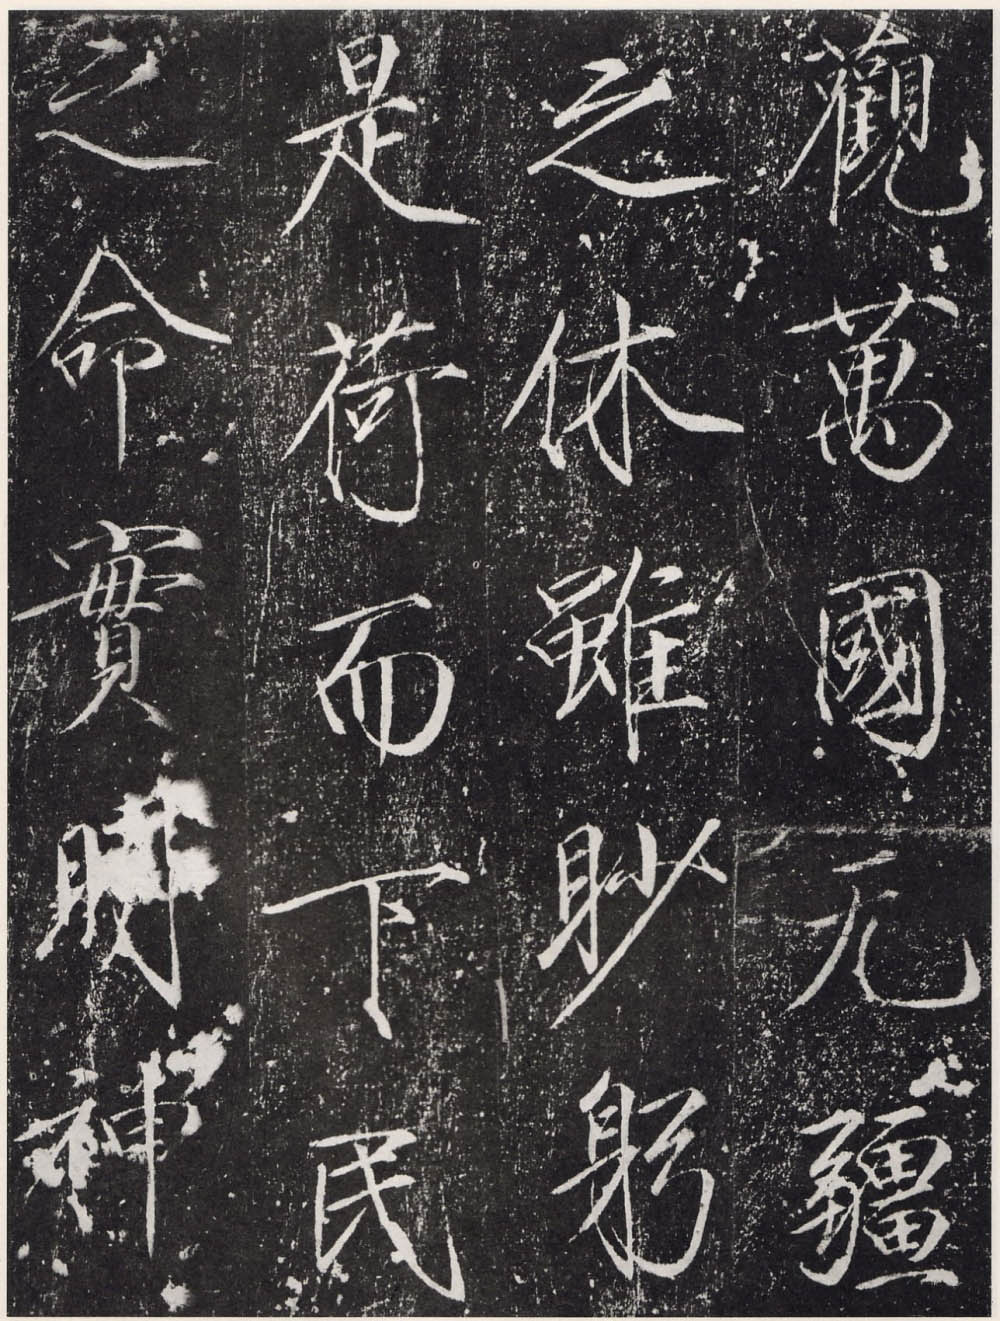 觀萬國元疆
之休雖眇躬
是荷而下民
之命實明神